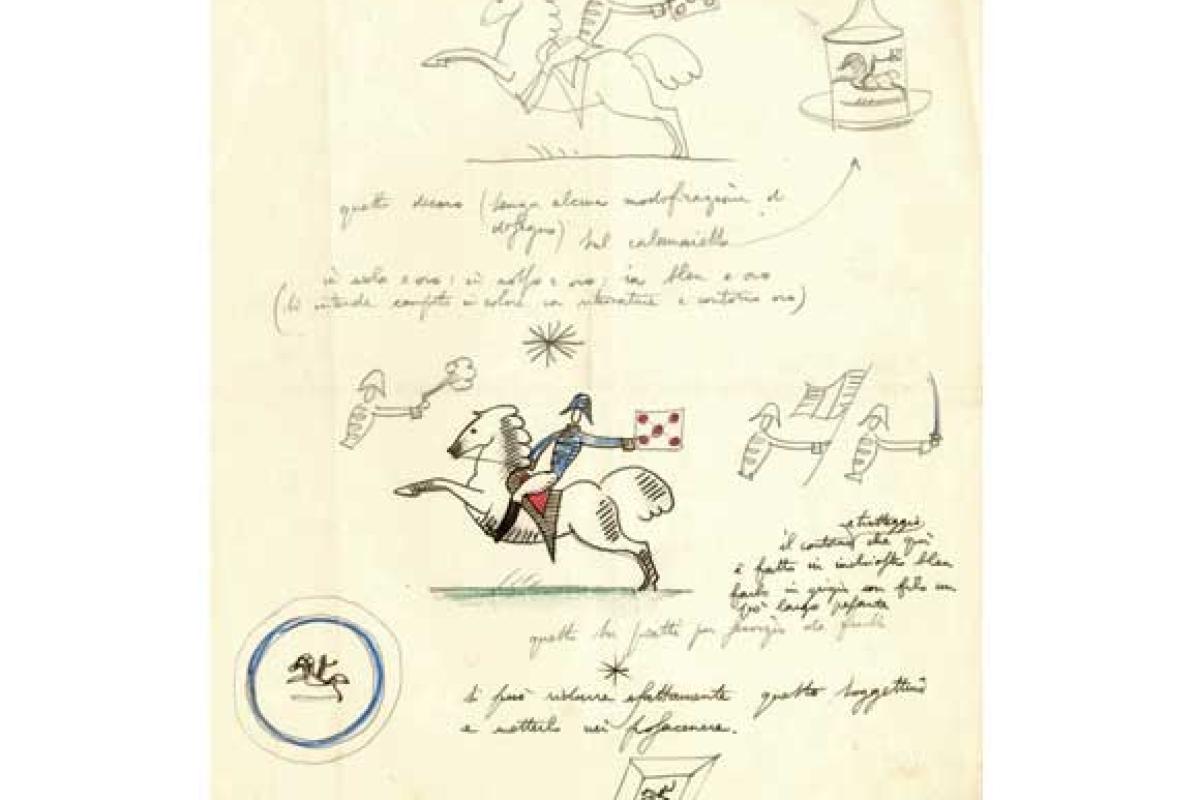 questo decoro (senza alcuna modificazione di
disegno) sul calamaietto
in viola e oro; in rosso e oro; in bleu e oro
(si intende in colore e contorno oro)
e tratteggio
il contorno che qui
è fatto in inchiostro bleu
farlo in grigio con filo un
po' largo pesante
questo su piatti per servizio da frutta
si può ridurre esattamente questo soggettino
e metterlo nei posacenere.